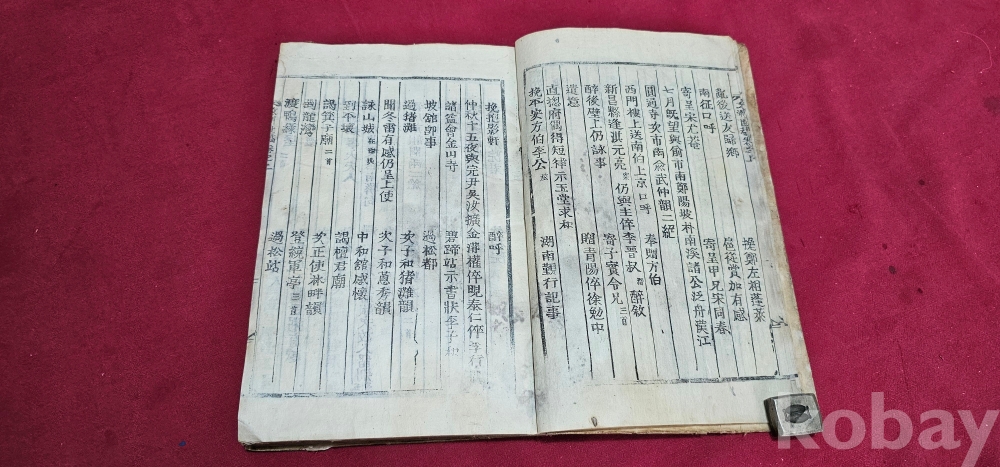 亂後送友歸鄉 挽鄭左相蓬萊
南征口呼 扈從賞加有感
寄呈宋尤菴 寄呈甲兄宋同春
七月旣望與俞市南鄭陽坡朴南溪諸公泛舟漢江
圓通寺次市南俞武仲韻二絕 奉贈方伯
西門樓上送南伯上京口呼 寄子實令兄二首
新昌縣逢洪元亮 仍與主倅李晉叔 醉敘
醉後壁上仍詠事 贈靑陽倅徐勉中
遣意 湖南覲行記事
直還府寓得短律示玉堂求和
挽平安方伯李公
挽抱影軒 醉呼
仲秋十五夜與完尹吳汝擴金溝權倅晛泰仁倅李行
諸益會金山寺 碧蹄站示書狀李子和
坡館卽事 過松都
過猪灘 次子和猪灘韻
聞冬雷有感仍呈上使 次子和蔥秀韻
詠山城 中和館感懷
到平城 謁檀君廟
謁箕子廟二首 次正使林畔韻
到龍灣 登統軍亭二首
渡鴨綠 過松站
kobay